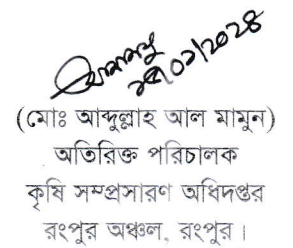 ২৫/০১/২০২৪
(মোঃ আব্দুল্লাহ আল মামুন)
অতিরিক্ত পরিচালক
কৃষি সম্প্রসারণ অধিদপ্তর
রংপুর অঞ্চল, রংপুর।